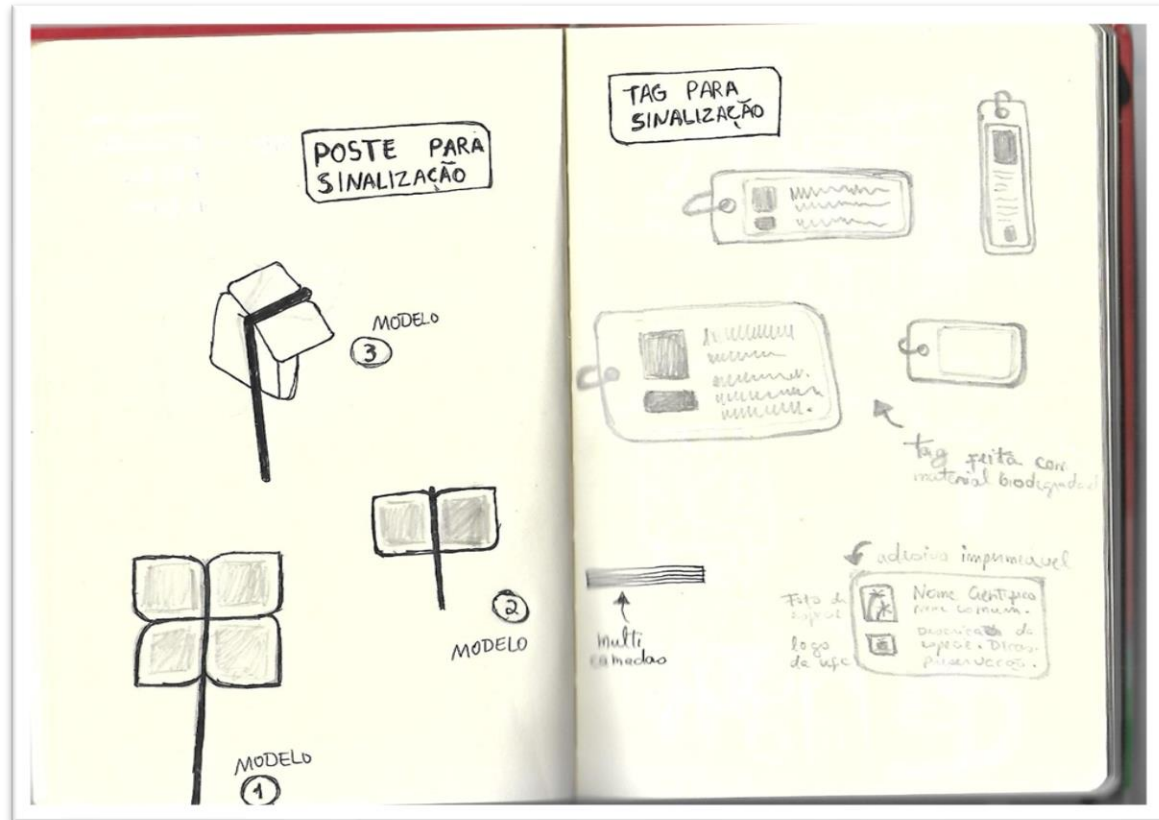 POSTE PARA
SINALIZAÇÃO
MODELO
3
2
MODELO
MODELO
1
TAG PARA
SINALIZAÇÃO
tag feita com
material
adesivo impermeavel
Foto da
logo
da ufc
Nome Científico
nome comum.
da
espécie. Dicas
multi
camadas